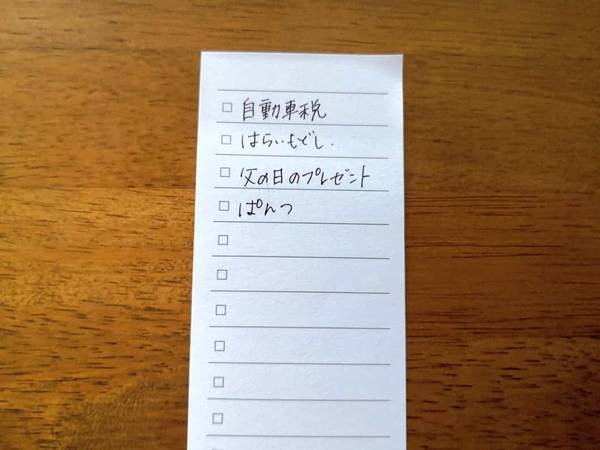 自動車税
はらいもどし.
父の日のプレゼント
ぱんつ